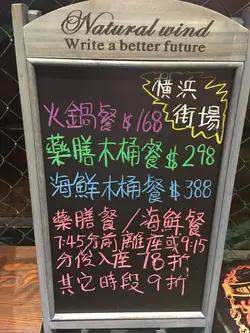 Natural wind
Write a better future
横浜
街場
火鍋餐 $168
藥膳木桶餐 $298
海鮮木桶餐 $388
藥膳餐/海鮮餐
7:45分前離座或9:15
分後入座 78折
其它時段 9折